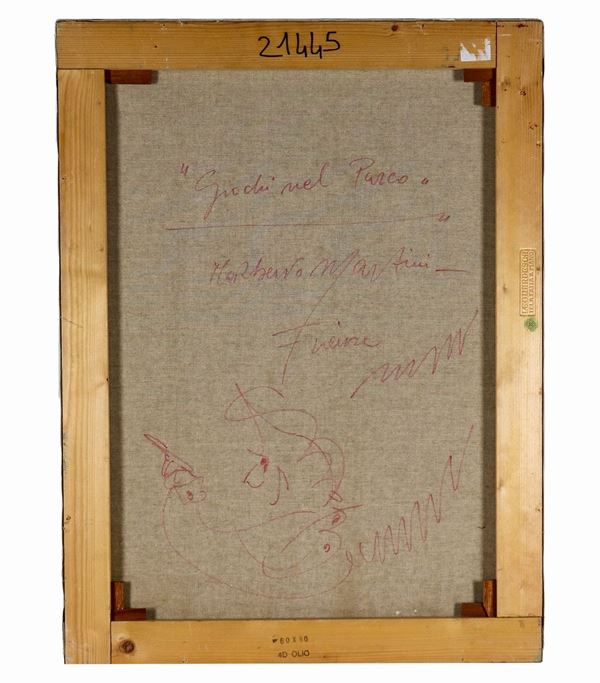 21445
"Giochi nel Parco"
Norberto Martini
Firenze
60X80
4D OLIO